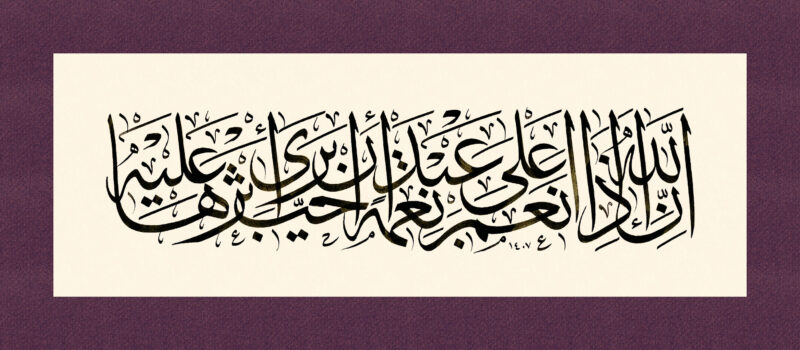 إنّ الله إذا أنعم على عبد بنعمة أحبّ أن يرى أثرها عليه
١٤٠٧